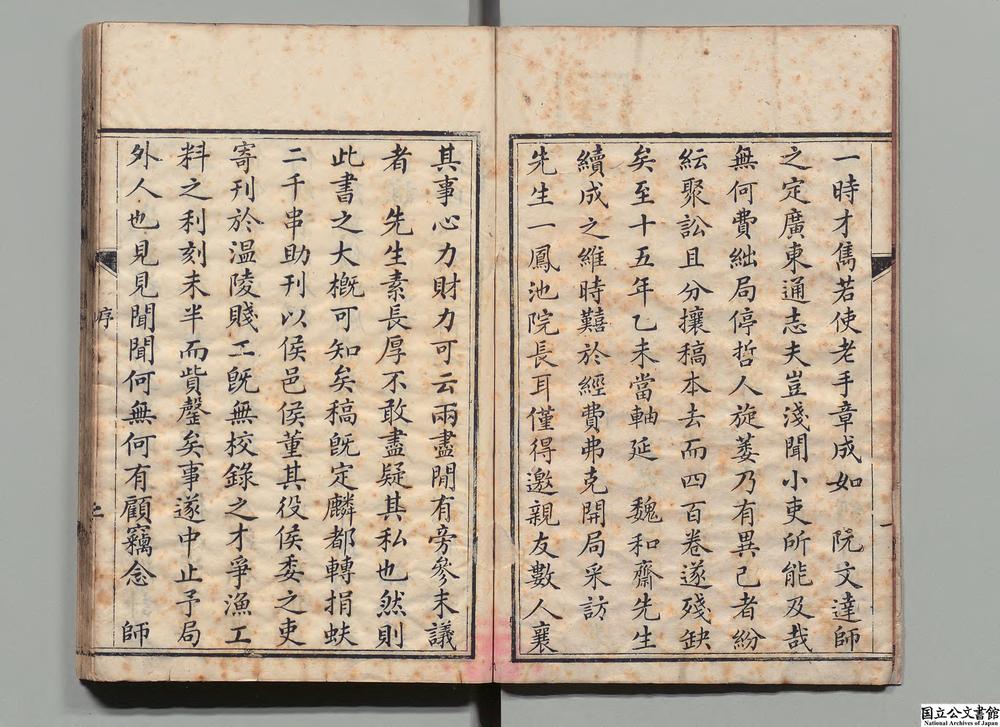 一時才雋若使老手章成如　阮文達師
之定廣東通志夫豈淺聞小吏所能及哉
無何費絀局停哲人旋萎乃有異己者紛
紜聚訟且分攘稿本去而四百卷遂殘缺
矣至十五年乙未當軸延　魏和齋先生
續成之維時囏於經費弗克開局采訪
先生一鳳池院長耳僅得邀親友數人襄
其事心力財力可云兩盡閒有旁參末議
者　先生素長厚不敢盡疑其私也然則
此書之大概可知矣稿既定麟都轉捐蚨
二千串助刊以侯邑侯董其役侯委之吏
寄刊於溫陵賤工既無校錄之才爭漁工
料之利刻未半而貲罄矣事遂中止予局
外人也見見聞聞何無何有顧竊念　師
序
國立公文書館
National Archives of Japan